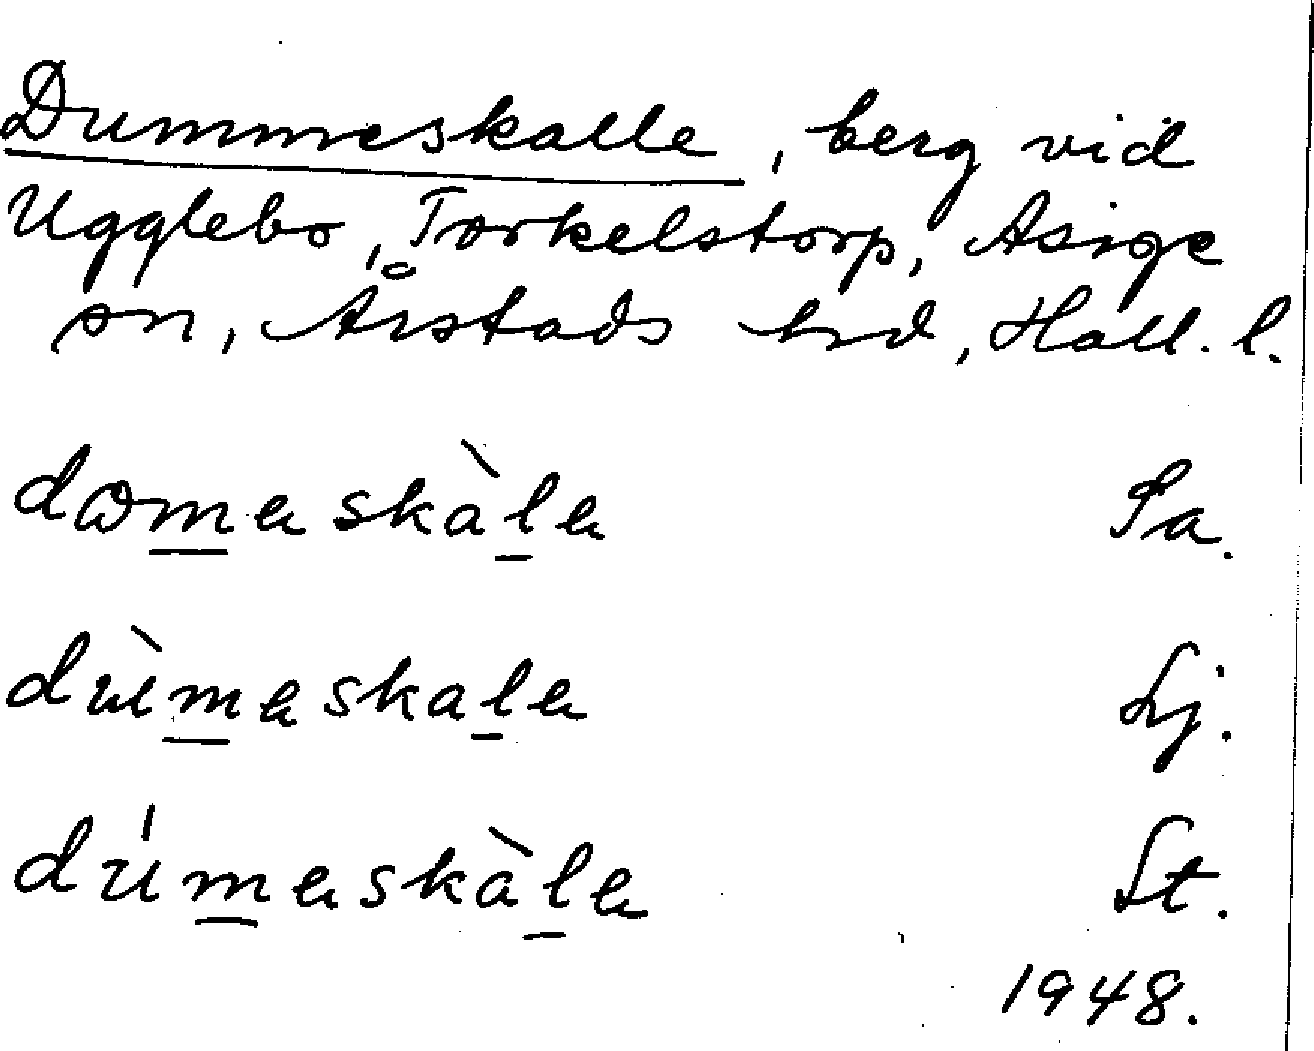 Dummeskalle, berg vid
Ugglebo, Torkelstorp, Asige
sn, Årstads hrd, Hall. l.
domeskàle Pa.
dùmeskale Lj.
dúmeskàle St.
1948.